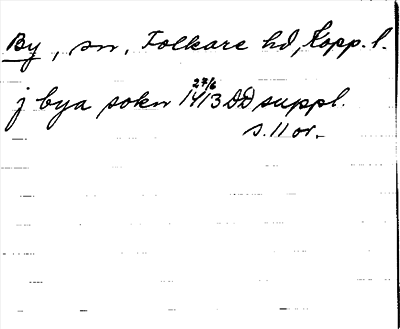 By, sn, Folkare hd, Kopp. l.
27/6
j bya sokn 1413 DD suppl.
s. 11 or.